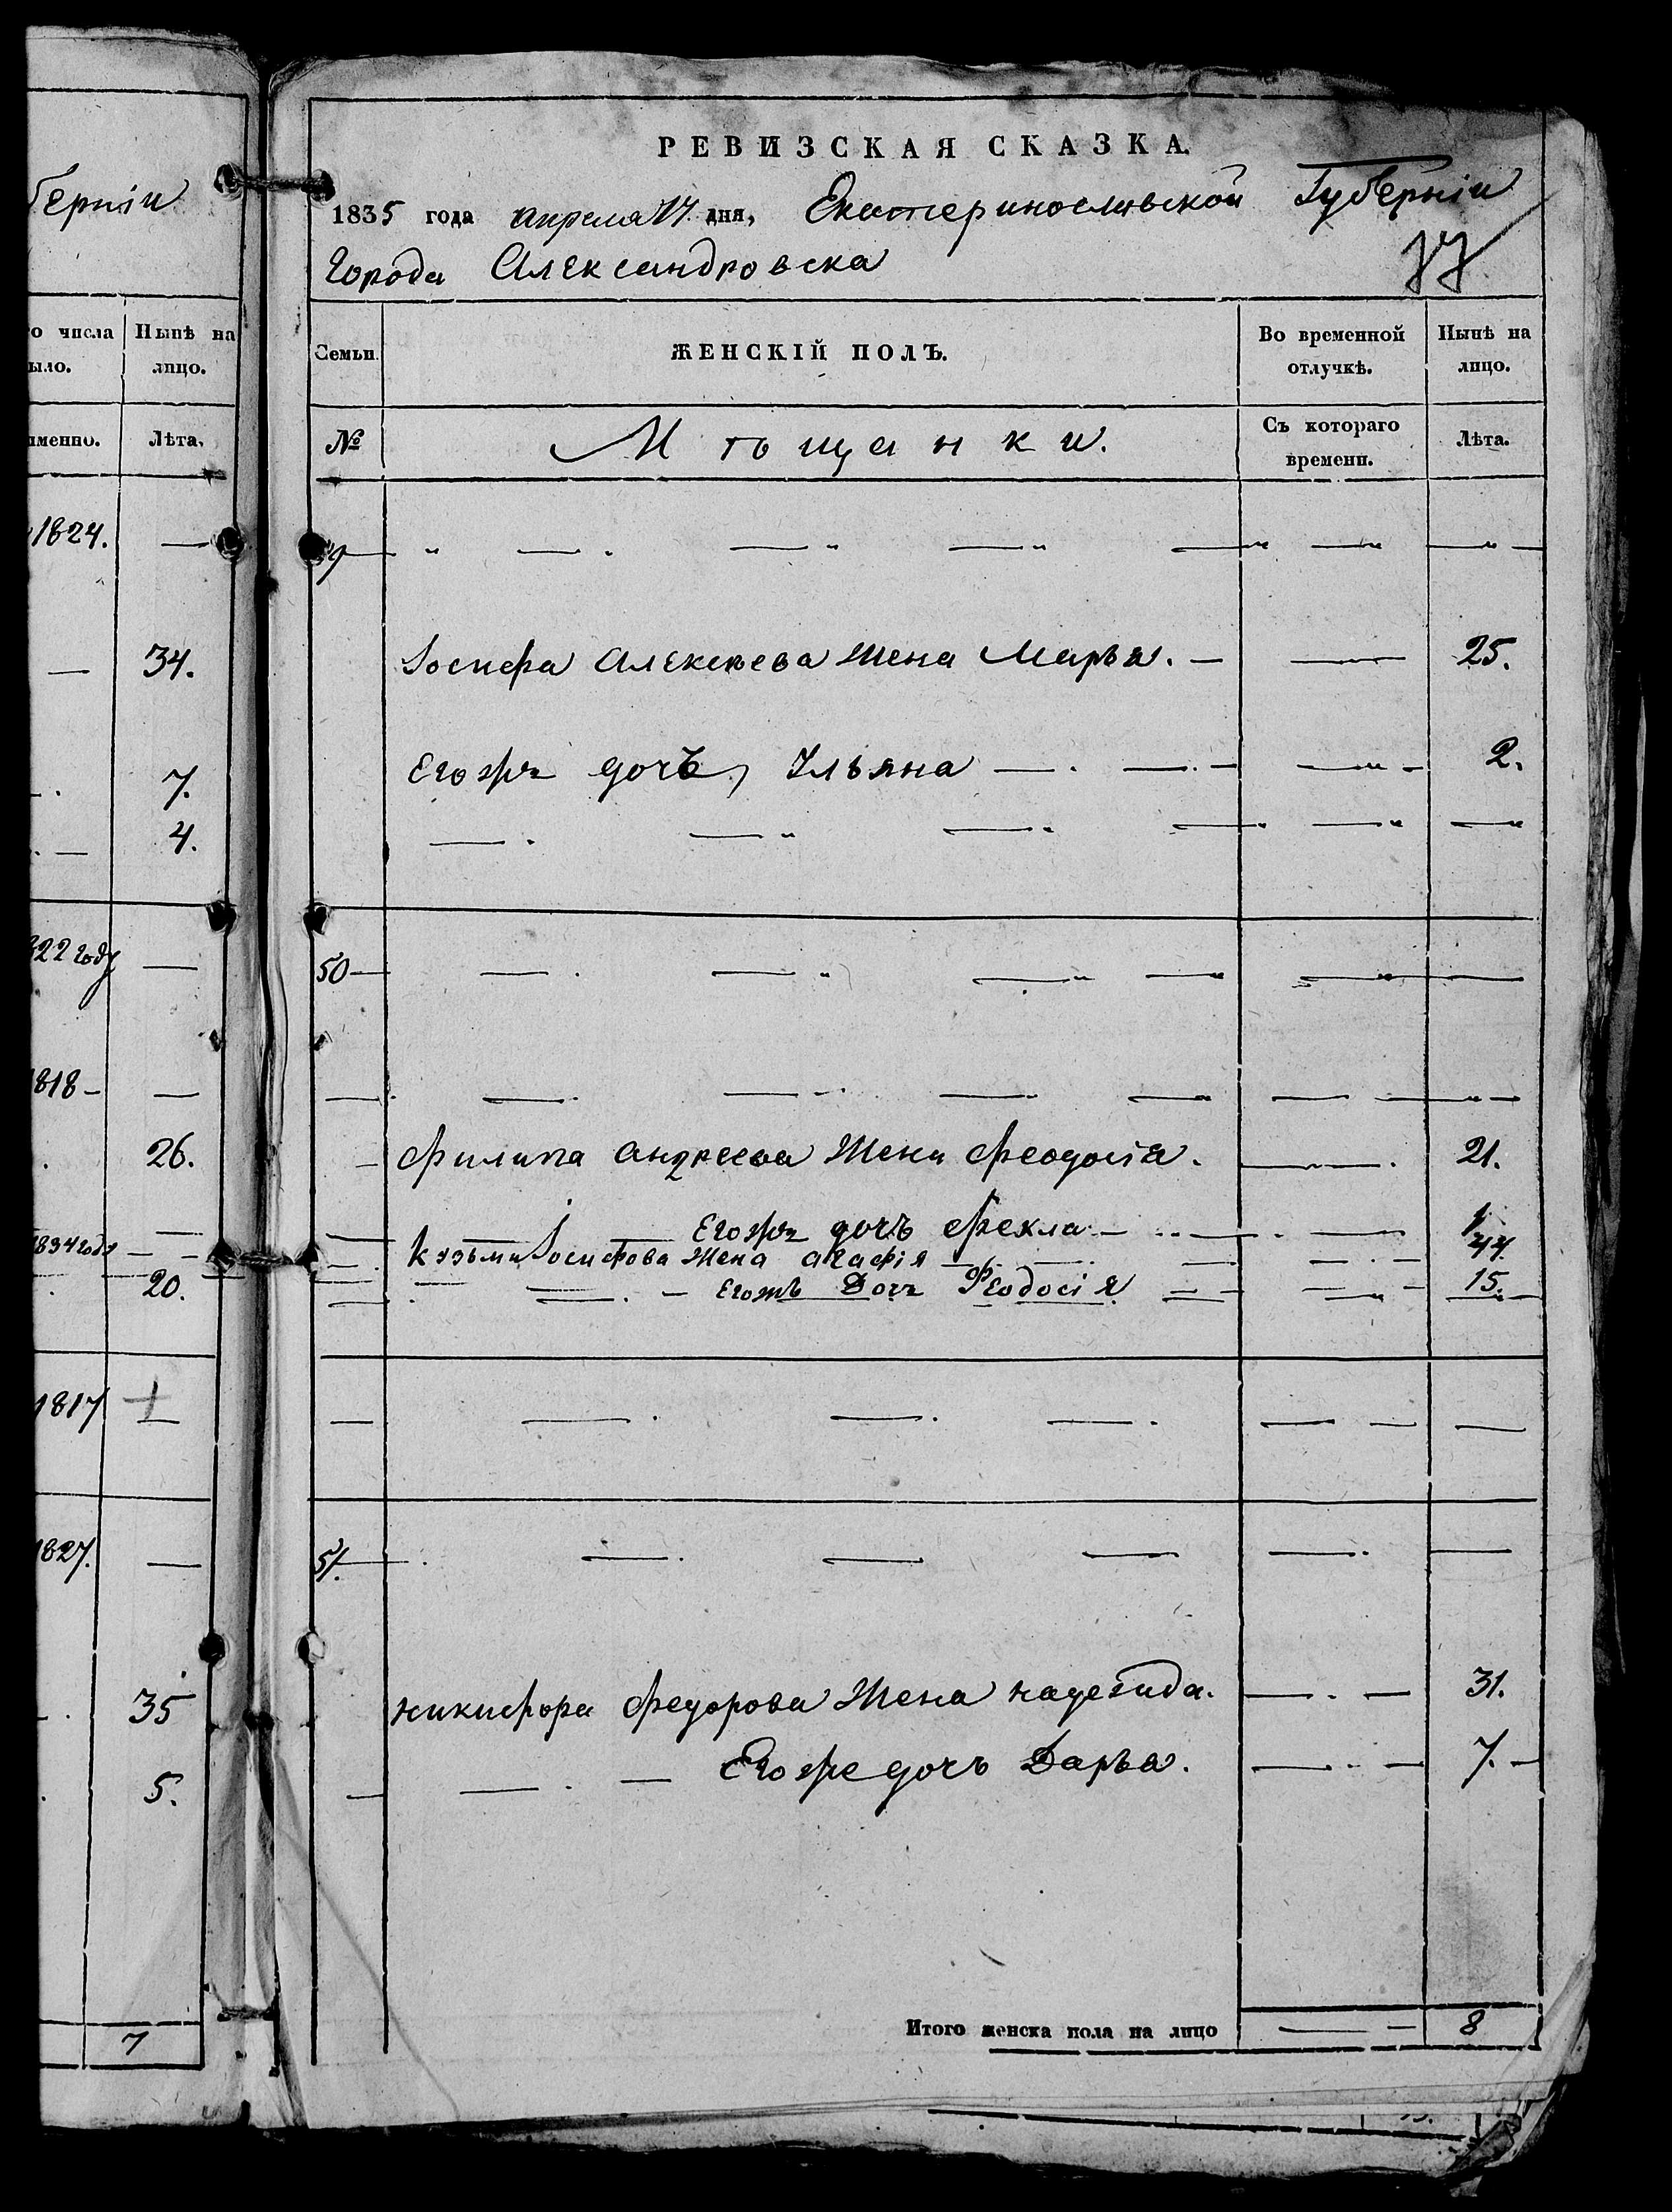 берніи
о числа Нынѣ на
ыло. лицо.
именно. Лѣта.
1824. —
— 34.
7.
4.
822 году —
1818 — —
26.
1834 года —
20.
1817 —
1827. —
35
5.
7
РЕВИЗСКАЯ СКАЗКА.
1835 года апреля 17 дня, Екатеринославской Губерніи
Города Александровска
77
Семьи. ЖЕНСКІЙ ПОЛЪ. Во временной отлучкѣ. Нынѣ на лицо.
№ Мѣщанки. Съ котораго времени. Лѣта.
Іосифа Алексѣева Жена Марья. — — 25.
Егожъ дочь, Ульяна — — 2.
50
Филипа Андреева Жена Феодосія. — 21.
Егожъ дочь Фекла — — 1
Кузьмы Іосифова Жена Агафія — 44
Егожъ Дочь Феодосія — 15.
51.
Никифора Федорова Жена Надежда. — 31.
Егоже дочь Дарья. — 7.
Итого женска пола на лицо — 8